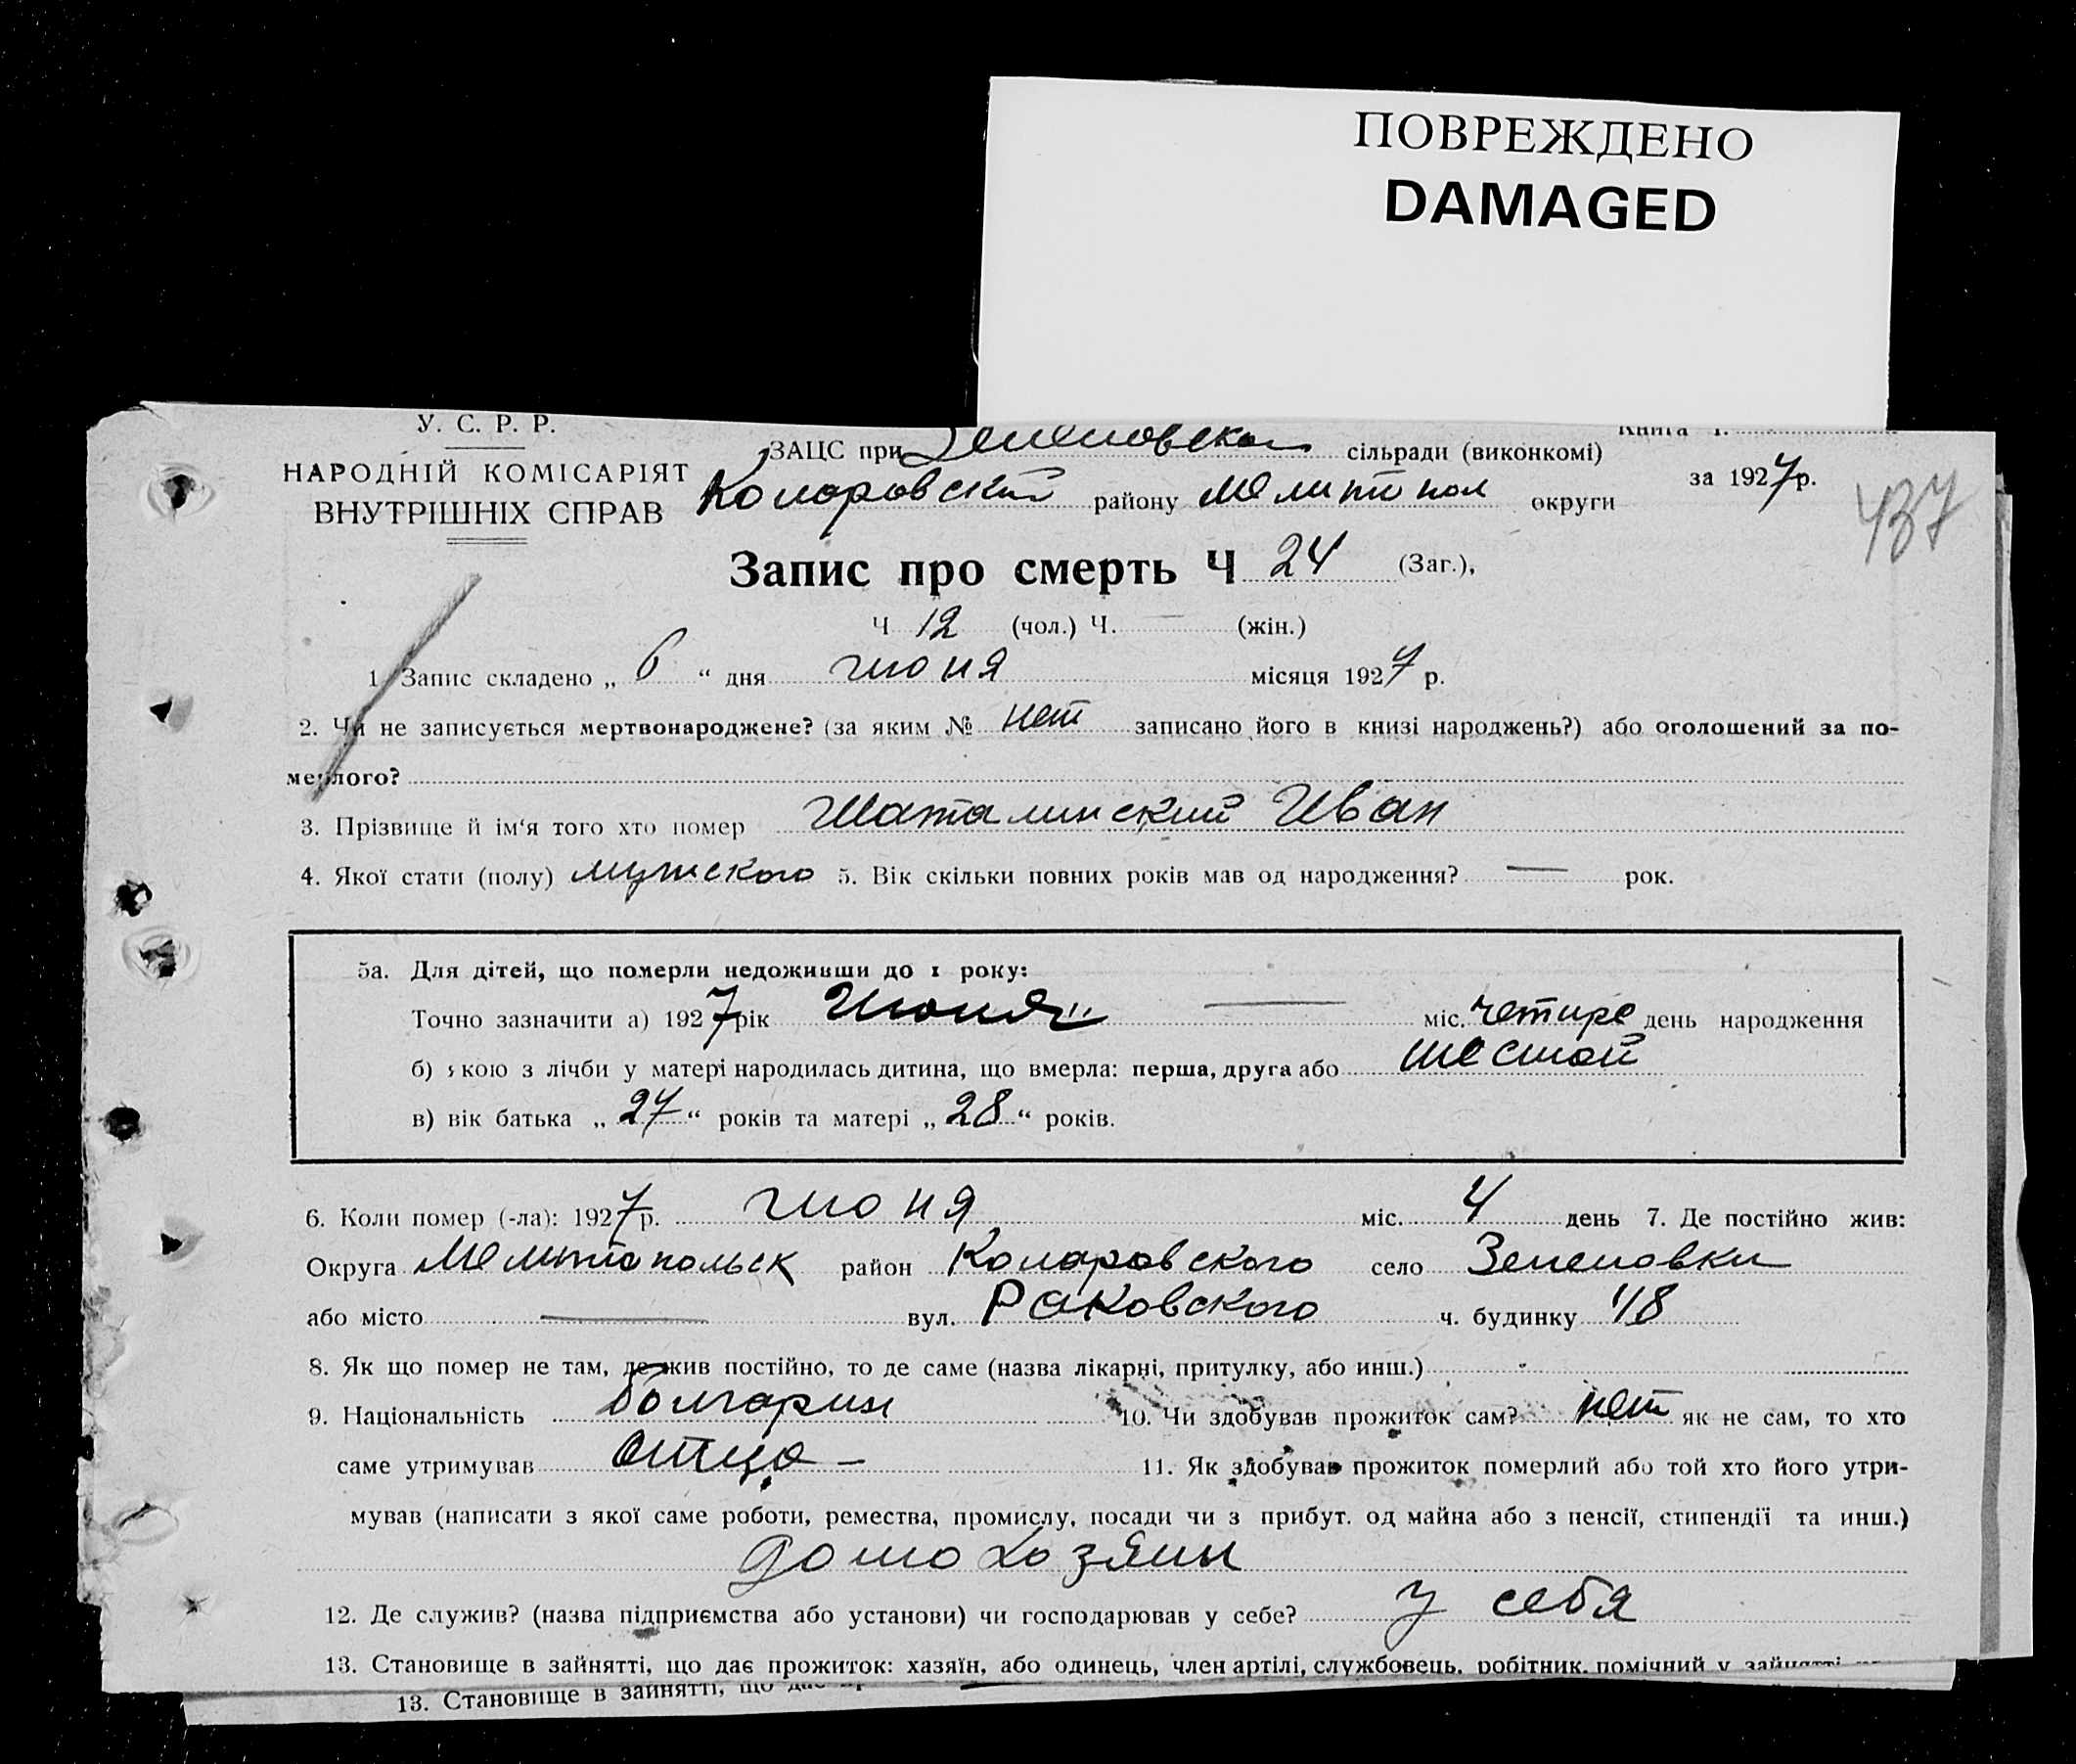 ПОВРЕЖДЕНО
DAMAGED
У. С. Р. Р.
НАРОДНІЙ КОМІСАРІЯТ
ВНУТРІШНІХ СПРАВ
ЗАЦС при Зеленовском сільради (виконкомі)
Коларовский району Мелитопол округи
Книга
за 1927 р.
437
Запис про смерть Ч 24 (Заг.),
Ч 12 (чол.) Ч. — (жін.)
1. Запис складено „ 6 “ дня июня місяця 1927 р.
2. Чи не записується мертвонароджене? (за яким № нет записано його в книзі народжень?) або оголошений за по-
мерлого?
3. Прізвище й ім‘я того хто помер Шаталинский Иван
4. Якої стати (полу) мужского 5. Вік скільки повних років мав од народження? — рок.
5а. Для дітей, що померли недоживши до 1 року:
Точно зазначити а) 1927 рік Июня — міс. четире день народження
б) якою з лічби у матері народилась дитина, що вмерла: перша, друга або шестой
в) вік батька „ 27 “ років та матері „ 28 “ років.
6. Коли помер (-ла): 1927 р. июня міс. 4 день 7. Де постійно жив:
Округа Мелитопольск район Коларовского село Зеленовки
або місто — вул. Раковского ч. будинку 48
8. Як що помер не там, де жив постійно, то де саме (назва лікарні, притулку, або инш.)
9. Національність болгарин 10. Чи здобував прожиток сам? нет як не сам, то хто
саме утримував отца — 11. Як здобував прожиток померлий або той хто його утри-
мував (написати з якої саме роботи, ремества, промислу, посади чи з прибут. од майна або з пенсії, стипендії та инш.)
домохозяин
12. Де служив? (назва підприємства або установи) чи господарював у себе? у себя
13. Становище в зайнятті, що дає прожиток: хазяїн, або одинець, член артілі, службовець, робітник, помічний у зайнятті
13. Становище в зайнятті, що дає